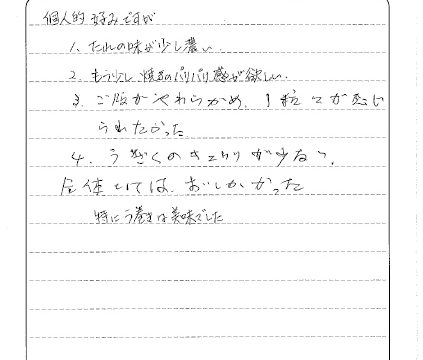 個人的好みですが
1. たれの味が少し濃い
2. もう少し焼きのパリパリ感が欲しい.
3. ご飯がやわらかめ. 1粒1粒が感じ
られたかった
4. うざくのきゅうりが少ない.
全体としては. おいしかった
特にう巻きは美味でした